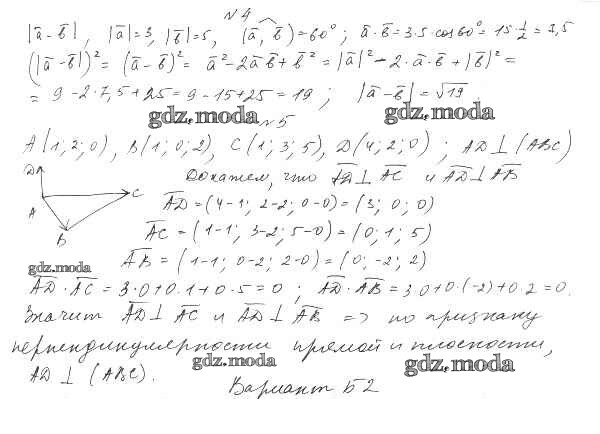 N4
|a̅ - b̅|, |a̅| = 3, |b̅| = 5, (a̅, b̅) = 60°; a̅·b̅ = 3·5·cos60° = 15·1/2 = 7,5
(|a̅ - b̅|)² = (a̅ - b̅)² = a̅² - 2a̅b̅ + b̅² = |a̅|² - 2·a̅·b̅ + |b̅|² =
= 9 - 2·7,5 + 25 = 9 - 15 + 25 = 19; |a̅ - b̅| = √19.
gdz.moda
gdz.moda
N5
A(1; 2; 0), B(1; 0; 2), C(1; 3; 5), D(4; 2; 0); AD ⊥ (ABC)
D
C
A
B
Докажем, что AD ⊥ AC и AD ⊥ AB
AD = (4-1; 2-2; 0-0) = (3; 0; 0)
AC = (1-1; 3-2; 5-0) = (0; 1; 5)
AB = (1-1; 0-2; 2-0) = (0; -2; 2)
gdz.moda
AD · AC = 3·0 + 0·1 + 0·5 = 0; AD · AB = 3·0 + 0·(-2) + 0·2 = 0.
Значит AD ⊥ AC и AD ⊥ AB => по признаку
перпендикулярности прямой и плоскости,
gdz.moda
gdz.moda
AD ⊥ (ABC).
Вариант Б2